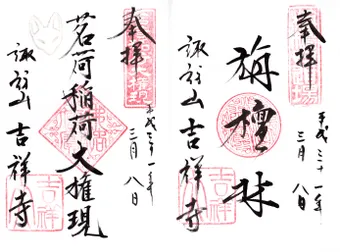 奉拝
平成三十一年
三月八日
旃檀林
諏訪山 吉祥寺
奉拝
平成三十一年
三月八日
茗荷稲荷大権現
諏訪山 吉祥寺